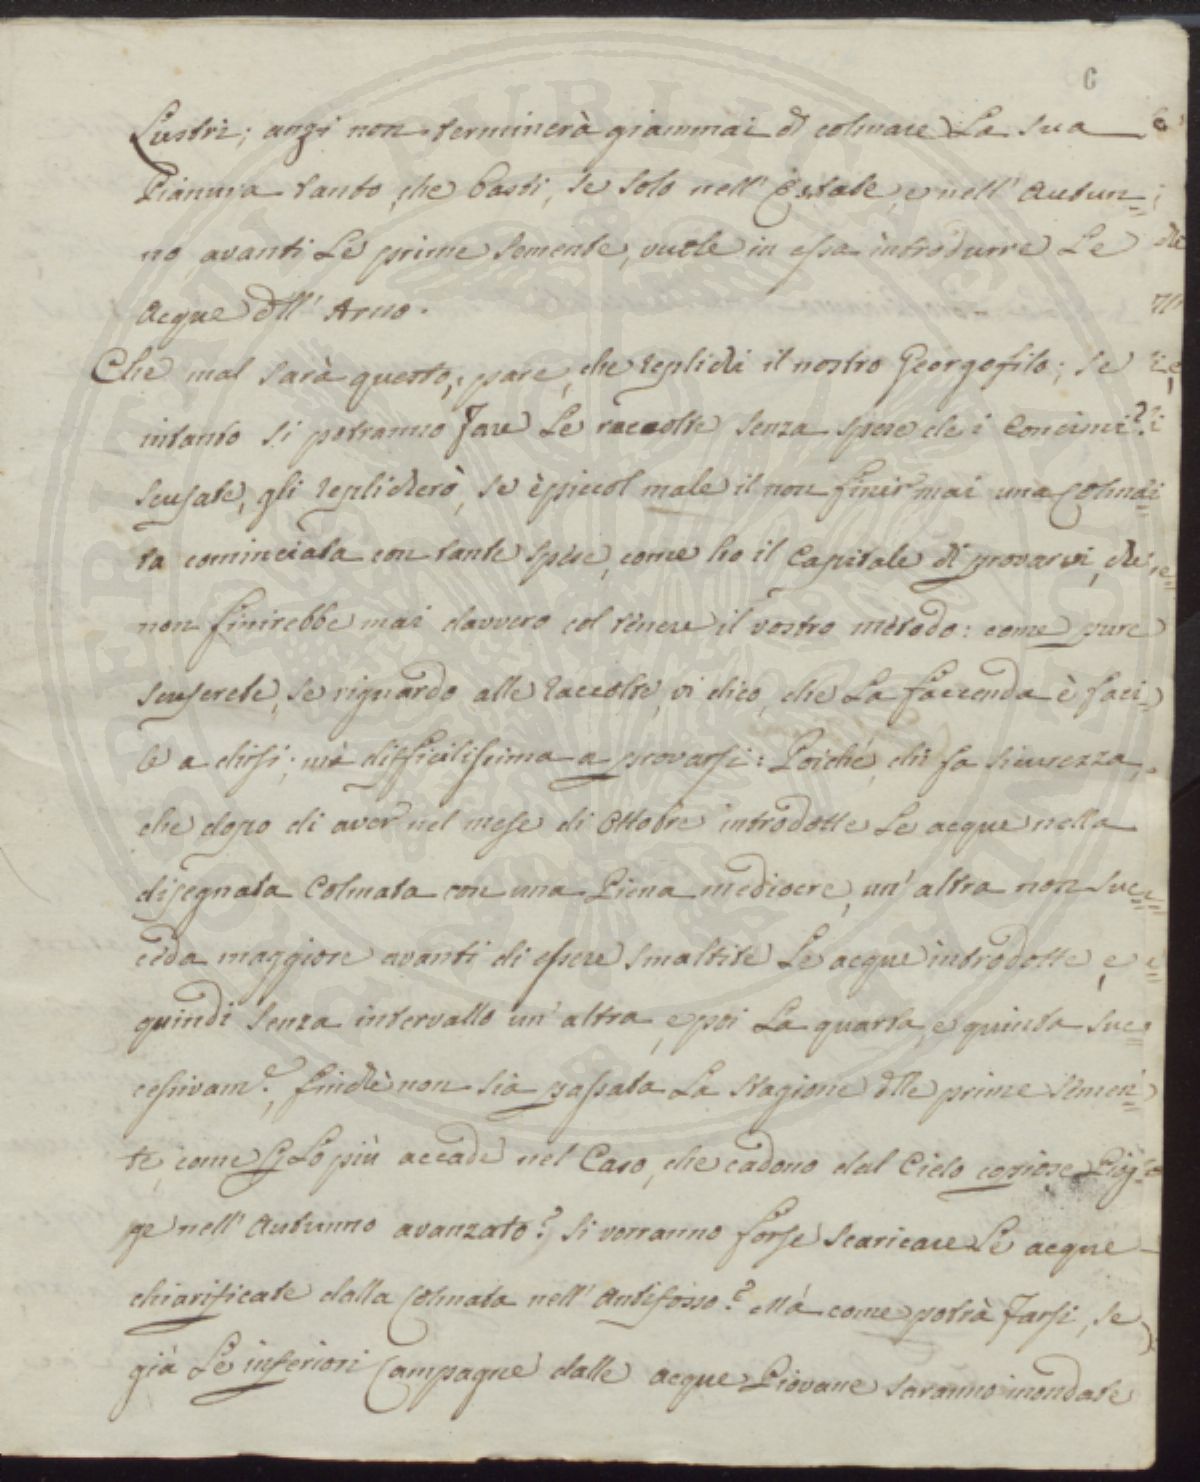 6
Lustri; anzi non terminerà giammai di colmare La sua
Pianura tanto, che basti, se solo nell' Estate, e nell' Autun=
no avanti Le prime Semente, vuole in essa introdurre Le
Acque dll' Arno.
Che mal sarà questo, pare, che replichi il nostro Georgofilo; se
intanto si potranno fare Le raccolte senza spese de i Concimi?
scusate, gli replicherò, se è piccol male il non finir mai una Colma=
ta cominciata con tante spese, come ho il Capitale di provarvi, che
non finirebbe mai davvero col tenere il vostro metodo: come pure
scuserete, se riguardo alle raccolte, vi dico, che La faccenda è faci=
le a dirsi; mà difficilissima a provarsi: Poiché, chi fa sicurezza,
che dopo di aver nel mese di Ottobre introdotte Le acque nella
disegnata Colmata con una Piena mediocre, un' altra non suc=
ceda maggiore avanti di essere smaltite Le acque introdotte, e
quindi senza intervallo un' altra, e poi La quarta, e quinta suc=
cessivam.e, finchè non sia passata La Stagione dlle prime Semen=
te, come p Lo più accade nel Caso, che cadono dal Cielo copiose Piog=
ge nell' Autunno avanzato? Si vorranno forse scaricare Le acque
chiarificate dalla Colmata nell' Antifosso? Mà come potrà farsi, se
già Le inferiori Campagne dalle acque Piovane saranno inondate